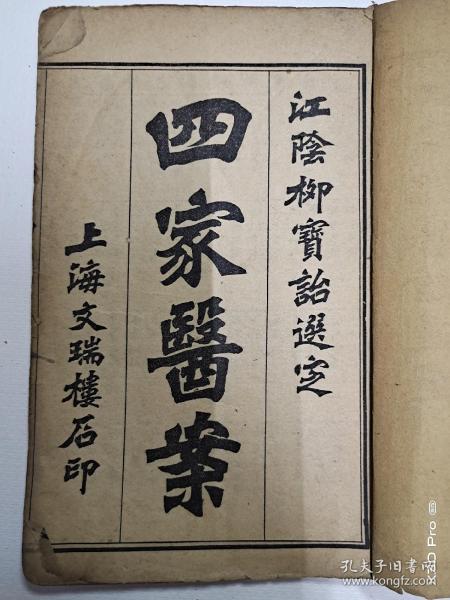 江陰柳寶詒選定
四家醫案
上海文瑞樓石印
孔夫子旧书网
www.kongfz.com